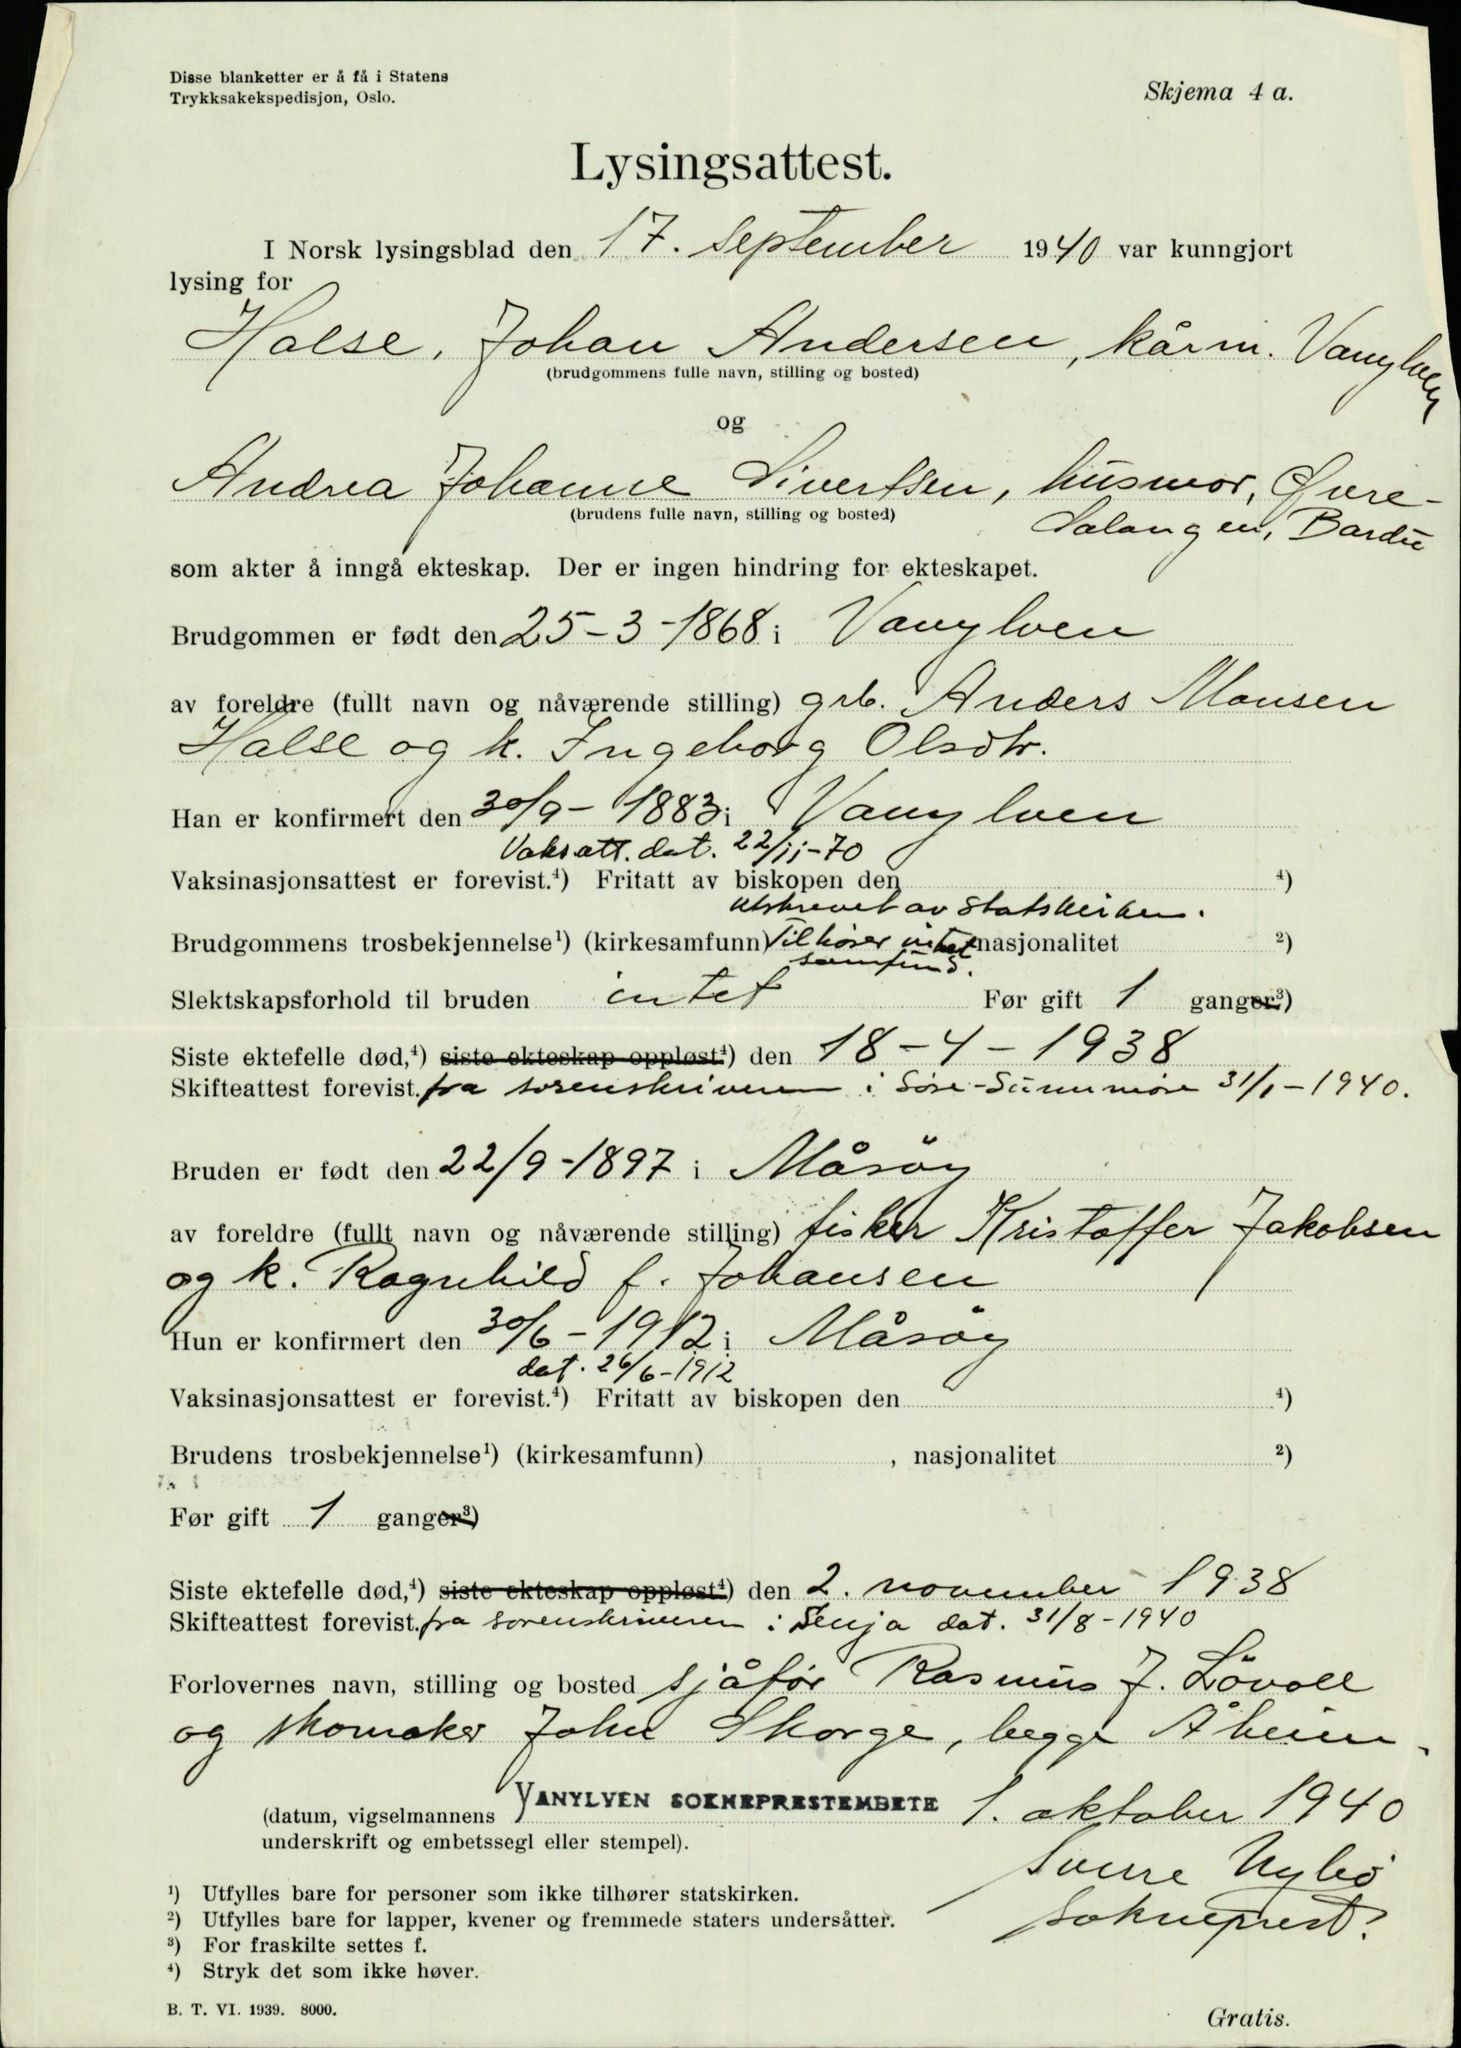 Disse blanketter er å få i Statens
Trykksakekspedisjon, Oslo.
Skjema 4 a.
Lysingsattest.
I Norsk lysingsblad den 17. september 1940 var kunngjort
lysing for
Halse, Johan Andersen, kårm. Vanylven
(brudgommens fulle navn, stilling og bosted)
og
Andrea Johanne Sivertsen, husmor, Øvre-
(brudens fulle navn, stilling og bosted)
Salangen, Bardu
som akter å inngå ekteskap. Der er ingen hindring for ekteskapet.
Brudgommen er født den 25-3-1868 i Vanylven
av foreldre (fullt navn og nåværende stilling) grb. Anders Monsen
Halse og k. Ingeborg Olsdtr.
Han er konfirmert den 30/9-1883 i Vanylven
Vaksatt. dat. 22/11-70
Vaksinasjonsattest er forevist.⁴) Fritatt av biskopen den ⁴)
utskrevet av statskirken.
Brudgommens trosbekjennelse¹) (kirkesamfunn) Tilhører intet nasjonalitet ²)
samfund.
Slektskapsforhold til bruden intet Før gift 1 ganger³)
Siste ektefelle død,⁴) siste ekteskap oppløst⁴) den 18-4-1938
Skifteattest forevist. fra sorenskriveren i Søre-Sunnmøre 31/1-1940.
Bruden er født den 22/9-1897 i Måsöy
av foreldre (fullt navn og nåværende stilling) fisker Kristoffer Jakobsen
og k. Ragnhild f. Johansen
Hun er konfirmert den 30/6-1912 i Måsöy
dat. 26/6-1912
Vaksinasjonsattest er forevist.⁴) Fritatt av biskopen den ⁴)
Brudens trosbekjennelse¹) (kirkesamfunn) , nasjonalitet ²)
Før gift 1 ganger³)
Siste ektefelle død,⁴) siste ekteskap oppløst⁴) den 2. november 1938
Skifteattest forevist. fra sorenskriveren i Senja dat. 31/8-1940
Forlovernes navn, stilling og bosted sjåfør Rasmus J. Lövoll
og skomaker John Skorge, begge Åheim.
VANYLVEN SOKNEPRESTEMBETE 1. oktober 1940
(datum, vigselmannens
underskrift og embetssegl eller stempel).
Sverre Nybö
sokneprest.
¹) Utfylles bare for personer som ikke tilhører statskirken.
²) Utfylles bare for lapper, kvener og fremmede staters undersåtter.
³) For fraskilte settes f.
⁴) Stryk det som ikke høver.
B. T. VI. 1939. 8000.
Gratis.